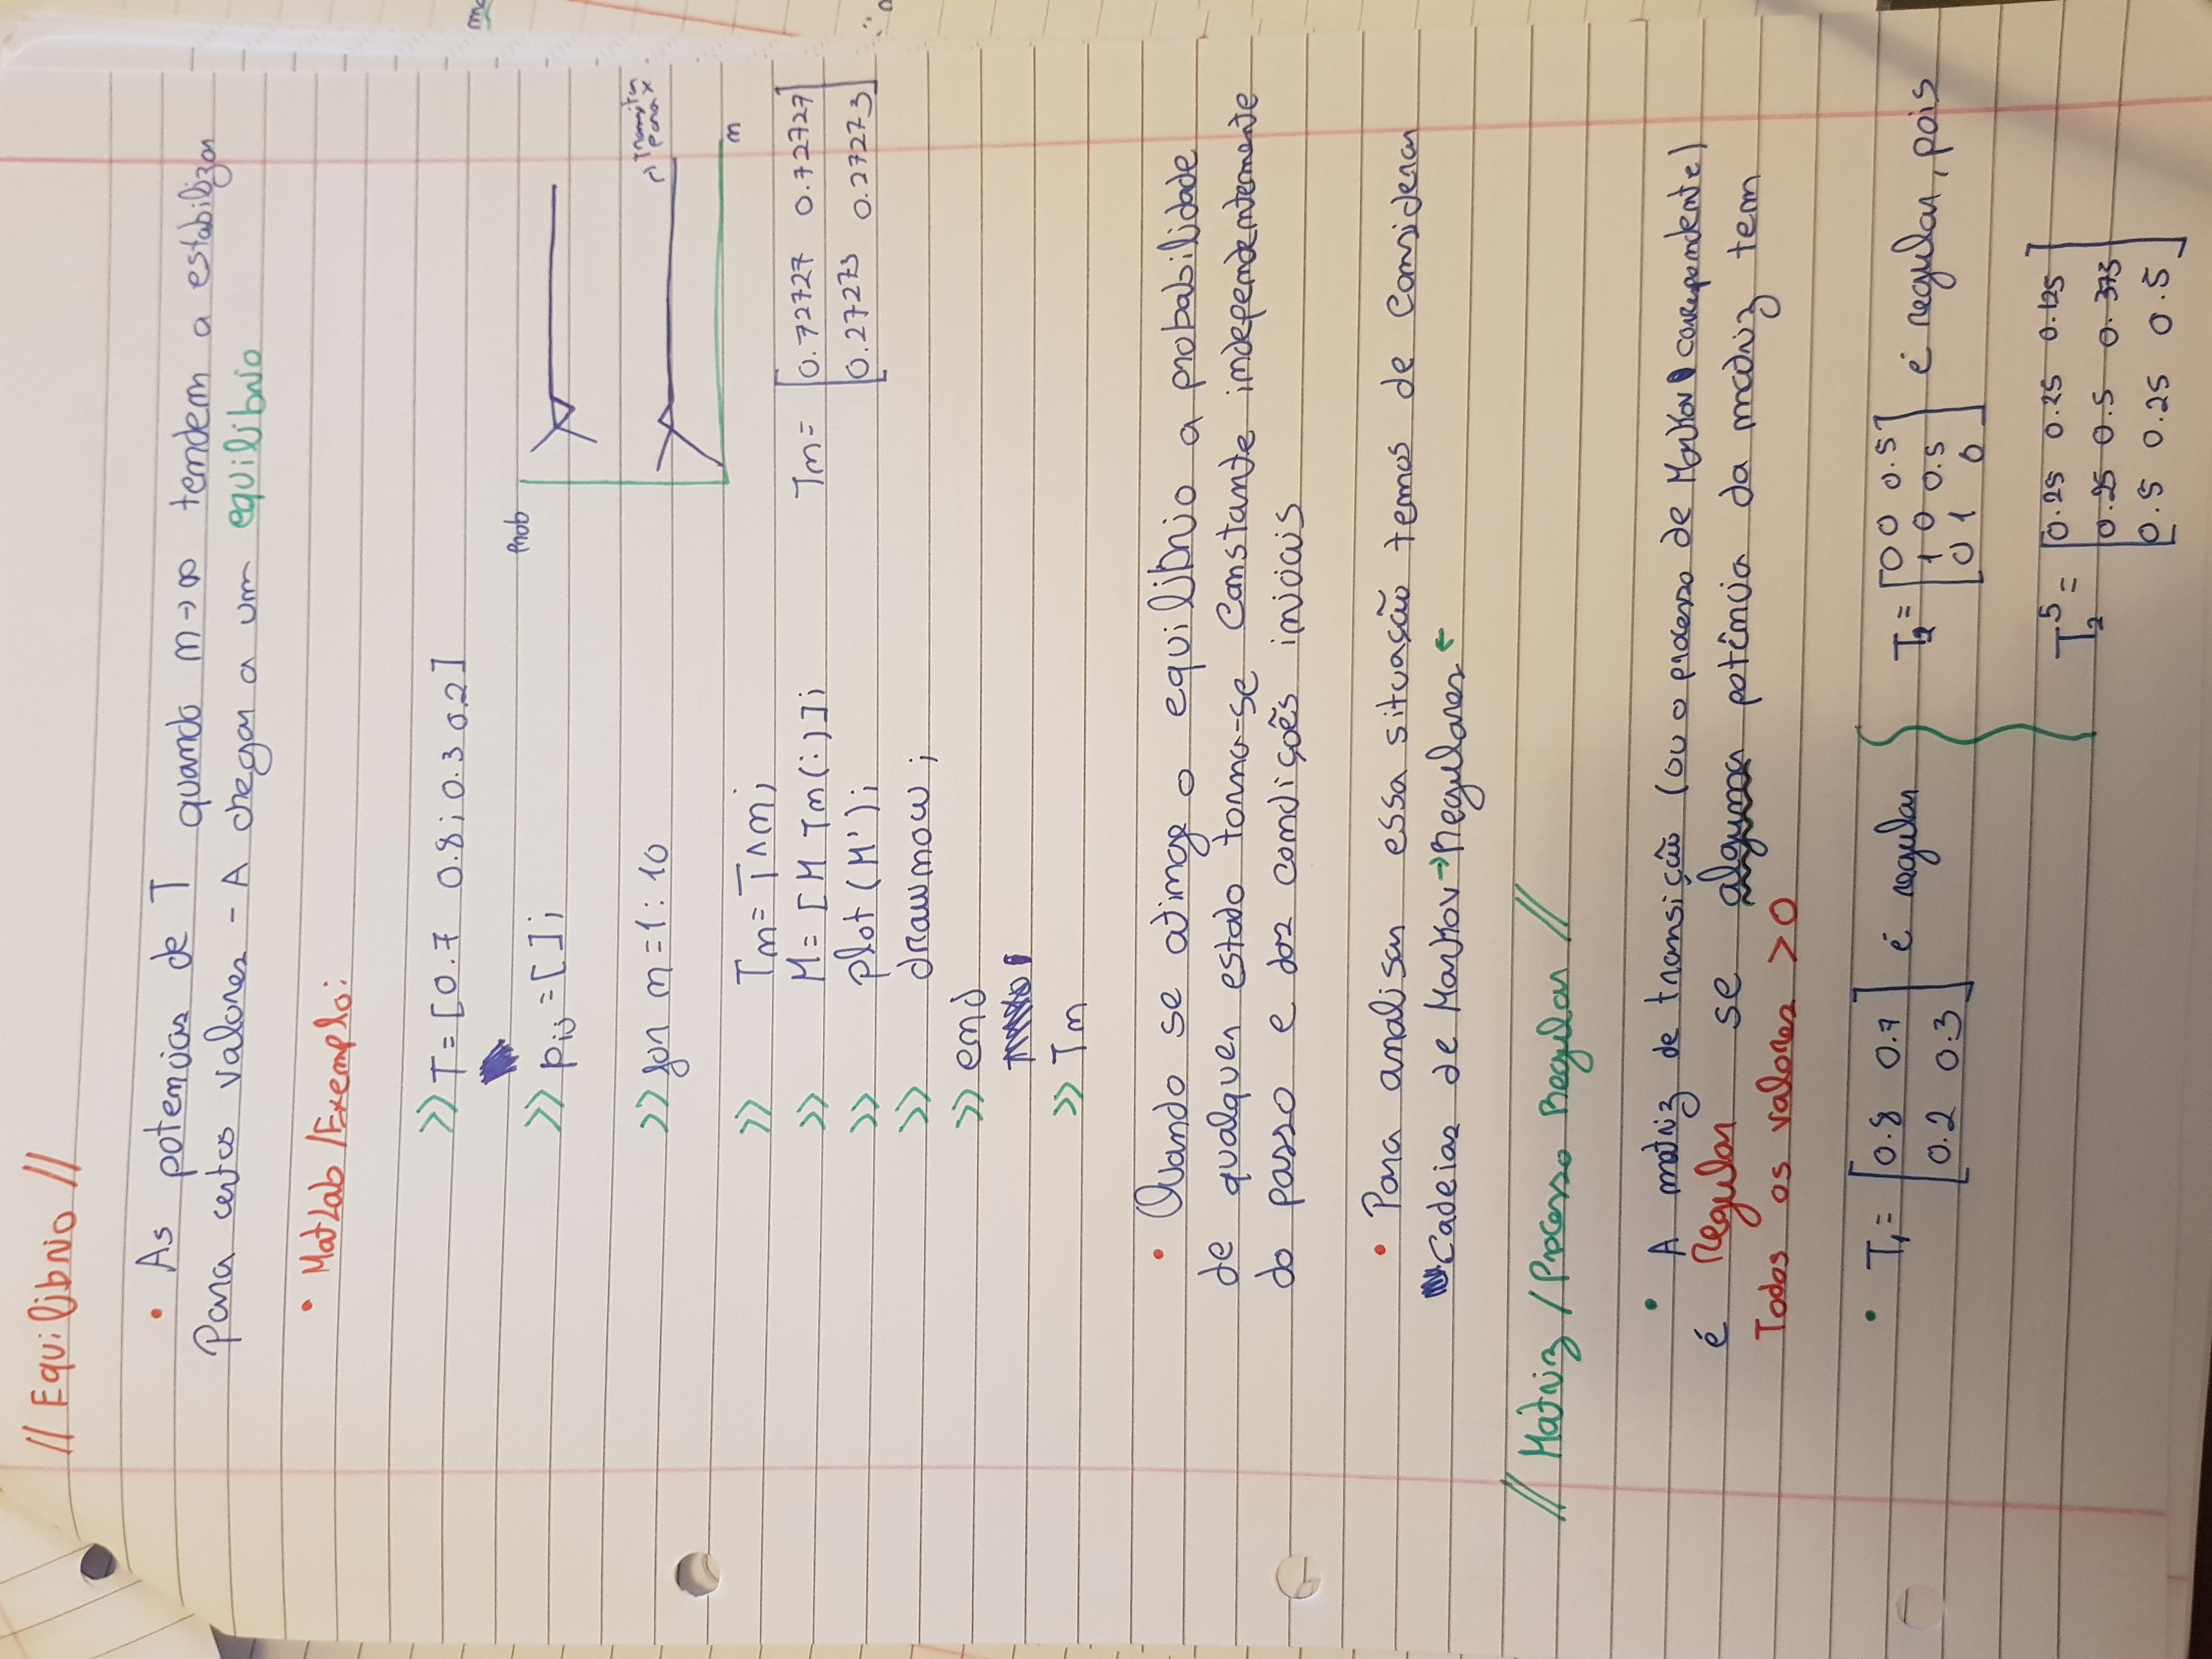 // Equilíbrio //
• As potencias de T quando n→∞ tendem a estabilizar
para certos valores - A chegar a um equilibrio
• MatLab /Exemplo:
>> T = [0.7 0.8; 0.3 0.2]
>> pij = [ ];
>> for n = 1 : 10
>> Tn = T^n;
>> M = [M Tn(:)];
>> plot (M');
>> drawnow;
>> end
>> Tn
Prob
Transitar
para X
n
Tn = [0.72727 0.72727
0.27273 0.27273]
• Quando se atinge o equilíbrio a probabilidade
de qualquer estado torna-se constante independentemente
do passo e das condições iniciais
• Para analisar essa situação temos de considerar
Cadeias de Markov → Regulares ←
// Matriz / Processo Regular //
• A matriz de transição (ou o processo de Markov correspondente)
é Regular se alguma potência da matriz tem
Todos os valores > 0
• T₁ = [0.8 0.7
0.2 0.3] é regular
T₂ = [0 0 0.5
1 0 0.5
0 1 0] é regular, pois
T₂⁵ = [0.25 0.25 0.125
0.25 0.5 0.375
0.5 0.25 0.5]